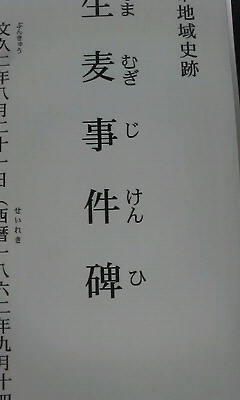 地域史跡
生麦事件碑
なまむぎじけんひ
文久二年八月二十一日(西暦一八六二年九月十四
ぶんきゅう
せいれき